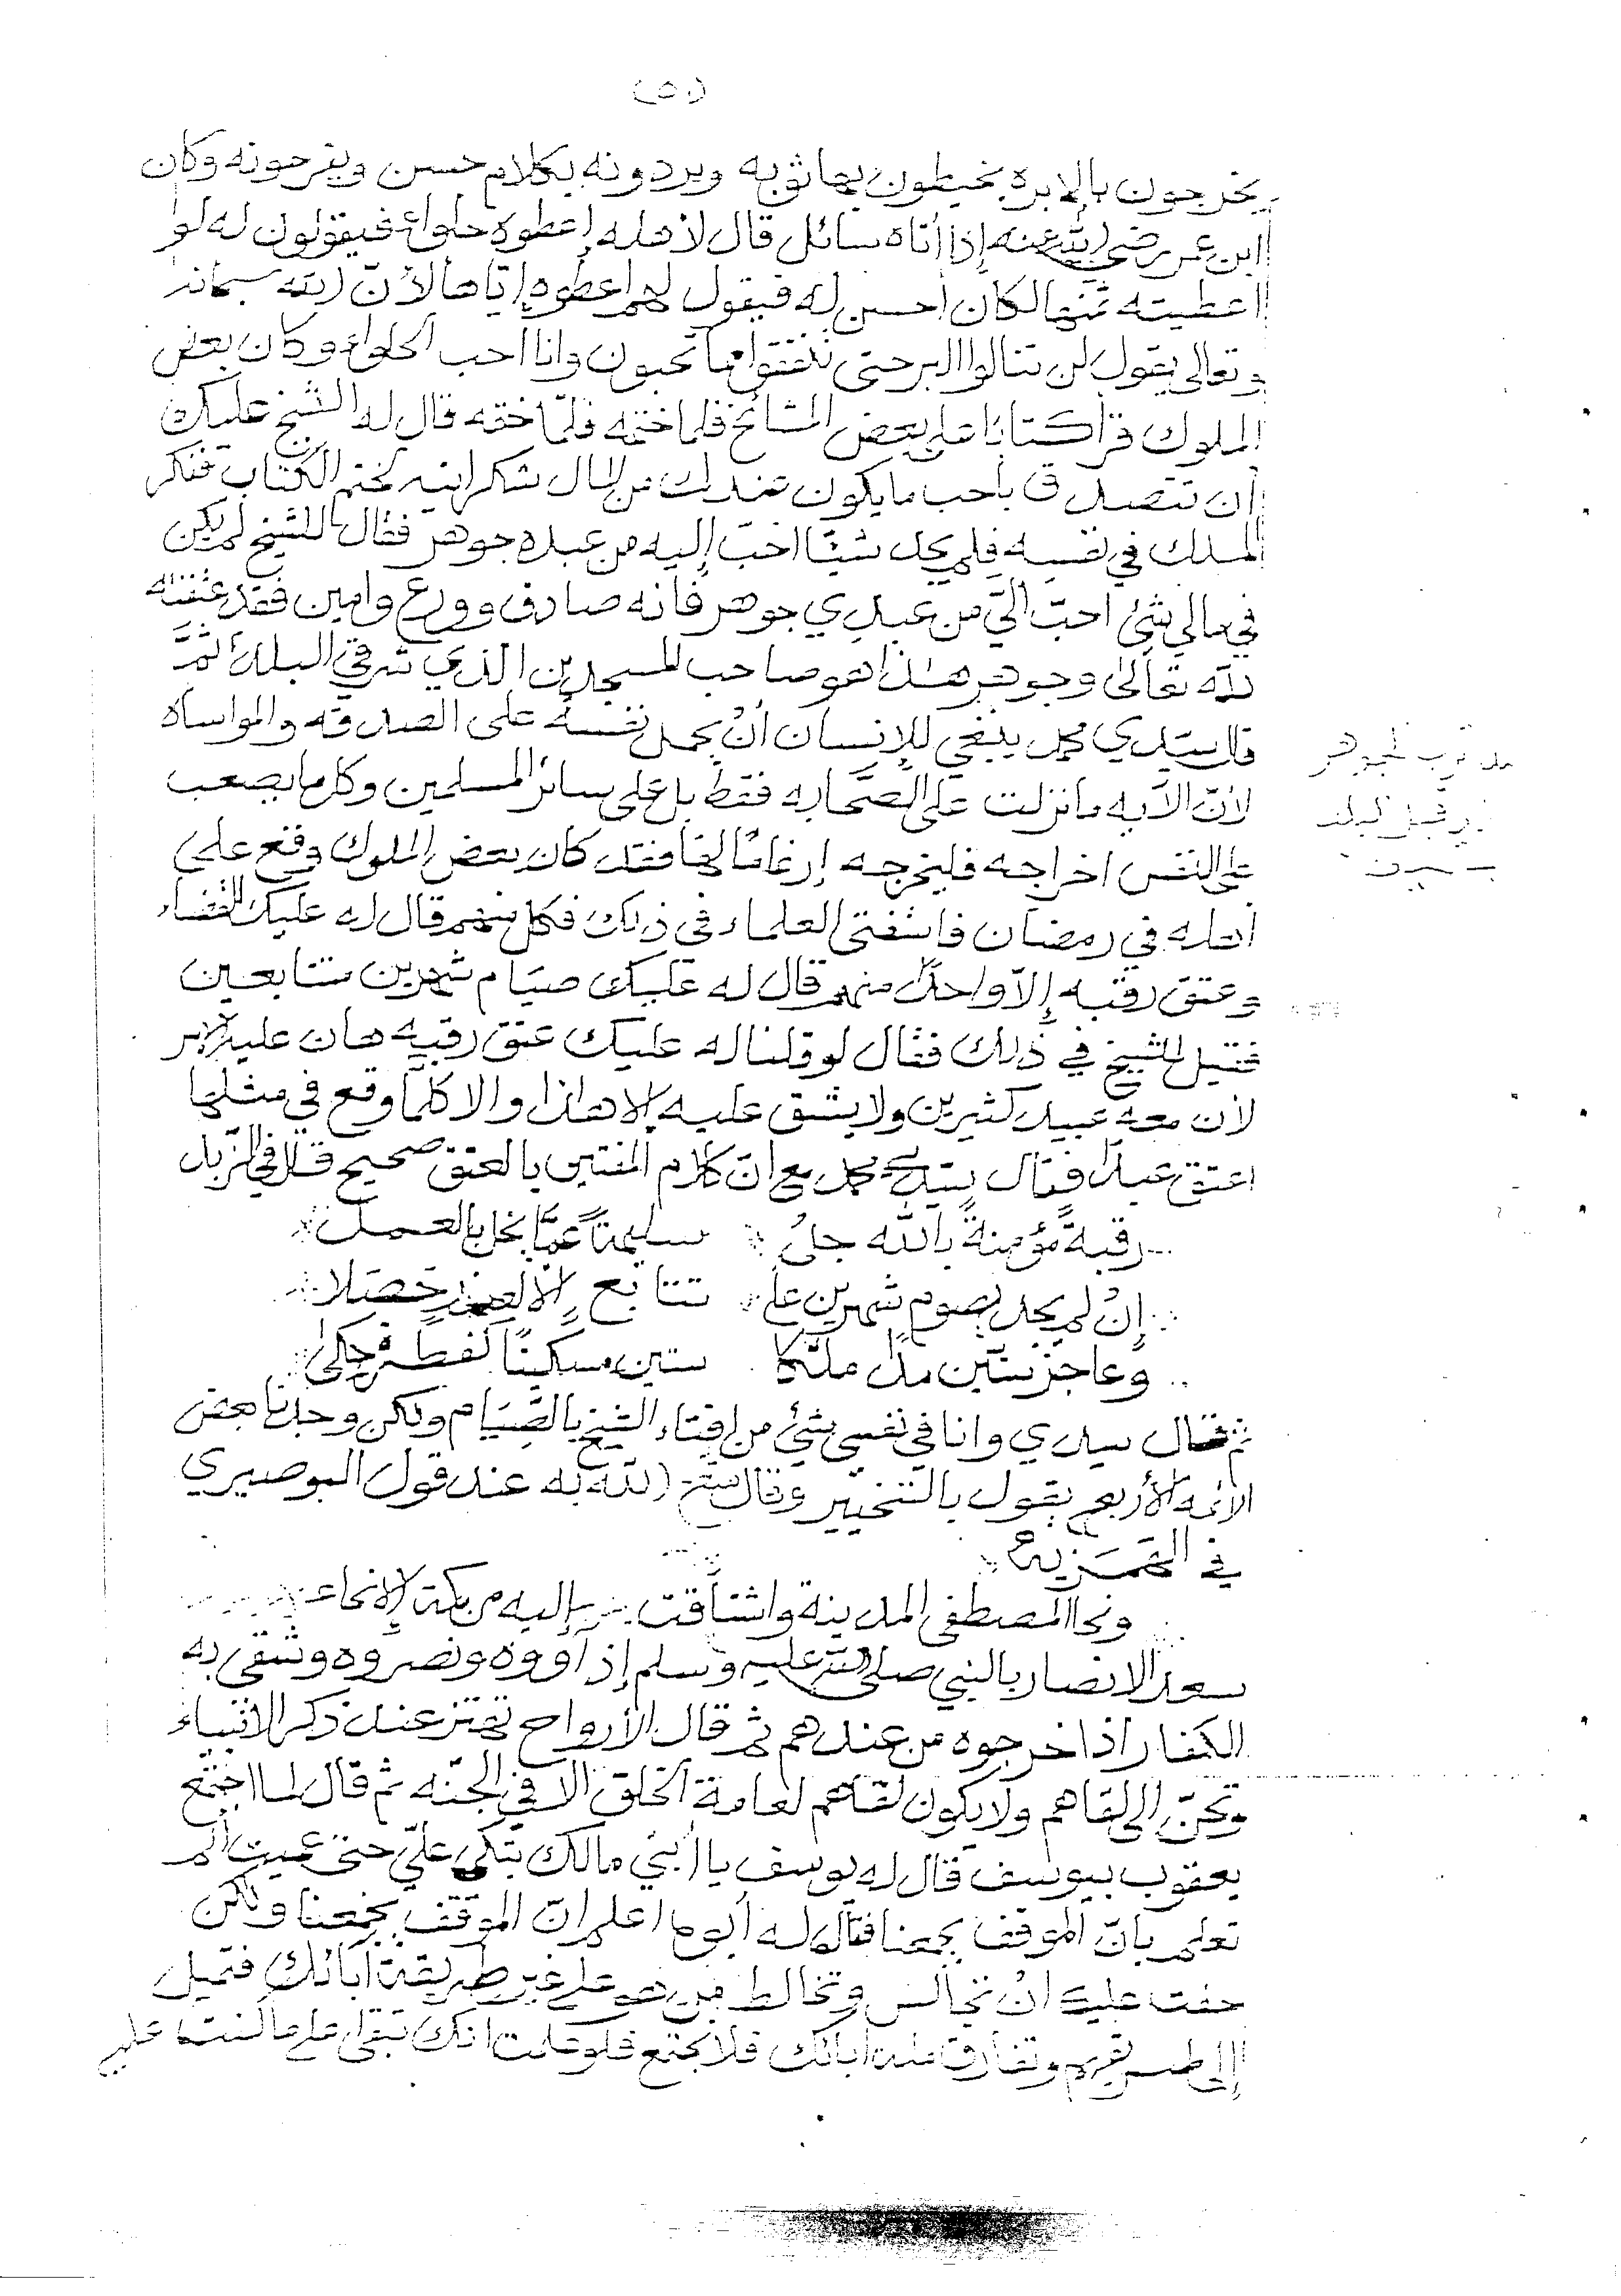 (٥١)
يخرجون بالإبره يخيطون بها ثوبه ويردونه بكلام حسن ويفرحونه وكان
ابن عمر رضي الله عنه إذا أتاه سائل قال لأهله إعطوه حلواء فيقولون له لوا
اعطيته ثمنها لكان أحسن له فيقول لهم اعطوه إيّاها لأنّ الله سبحانه
وتعالى يقول لن تنالوا البر حتى تنفقوا مما تحبون وانا احب الحلواء وكان بعض
الملوك قرأ كتابًا على بعض المشائخ فلما ختمه فلمّا ختمه قال له الشيخ عليك
أن تتصدق بأحب ما يكون عندك من المال شكرانيه لختم الكتاب ففكر
الملك في نفسه فلم يجد شيئًا احبّ إليه من عبده جوهر فقال للشيخ لم يكن
في مالي شئ احبّ اليّ من عبدي جوهر فانه صادق وورع وامين فقد عتقته
لله تعالى وجوهر هذا هو صاحب المسجدين الذي شرقي البلد ثمَّ
قال سيدي محمد ينبغي للإنسان أن يحمل نفسه على الصدقه والمواساه
لأنّ الآيه ما نزلت على الصّحابه فقط بل على سائر المسلمين وكلما يصعب
على النفس اخراجه فليخرجه إرغامًا لها فقد كان بعض الملوك وقع على
اهله في رمضان فاستفتى العلماء في ذلك فكل منهم قال له عليك القضاء
وعتق رقبه إلاّ واحدًا منهم قال له عليك صيَام شهرين متتابعين
فقيل للشيخ في ذلك فقال لو قلنا له عليك عتق رقبه هان عليه الامر
لأن معه عبيد كثيرين ولا يشق عليه إلا هذا والا كلما وقع في مثلها
اعتق عبدًا فقال سيدي محمد مع انّ كلام المفتين بالعتق صحيح قال في الزبد
رقبةً مؤمنةً بالله جلُ سليمةً عمّا يخل بالعمل
إنْ لم يجد يصوم شهرين على تتابع إلا لعذر حصلا
وعاجز ستّين مدًا ملّكا ستين مسكينًا كفطرة حكى
ثم قال سيدي وانا في نفسي شئ من افتاء الشيخ بالصِّيَام ولكن وجدنا بعض
الائمه الأربعه يقول بالتخيير وقال متع الله به عند قول البوصيري
في الهمَزيه
ونحا المصطفى المدينة واشتاقت إليه من مكة الأنحاء
سعد الانصار بالنبي صلى الله عليه وسلم إذ آووه ونصروه وشقي به
الكفار اذ اخرجوه من عندهم ثم قال الأرواح تهتز عند ذكر الانبياء
وتحنّ إلى لقاهم ولا يكون لقاهم لعامة الخلق الا في الجنّه ثم قال لما اجتمع
يعقوب بيوسف قال له يوسف يا أبتي مالك تبكي عليّ حتى عميت ألم
تعلم بانّ الموقف يجمعنا فقال له أبوه اعلم انّ الموقف يجمعنا ولكن
خفت عليك انْ تجالس وتخالط من هو على غير طريقة آبائك فتميل
إلى طريقهم وتفارق ملة ابائك فلا نجتمع فلو علمت انك تبقى على ما أنت عليه